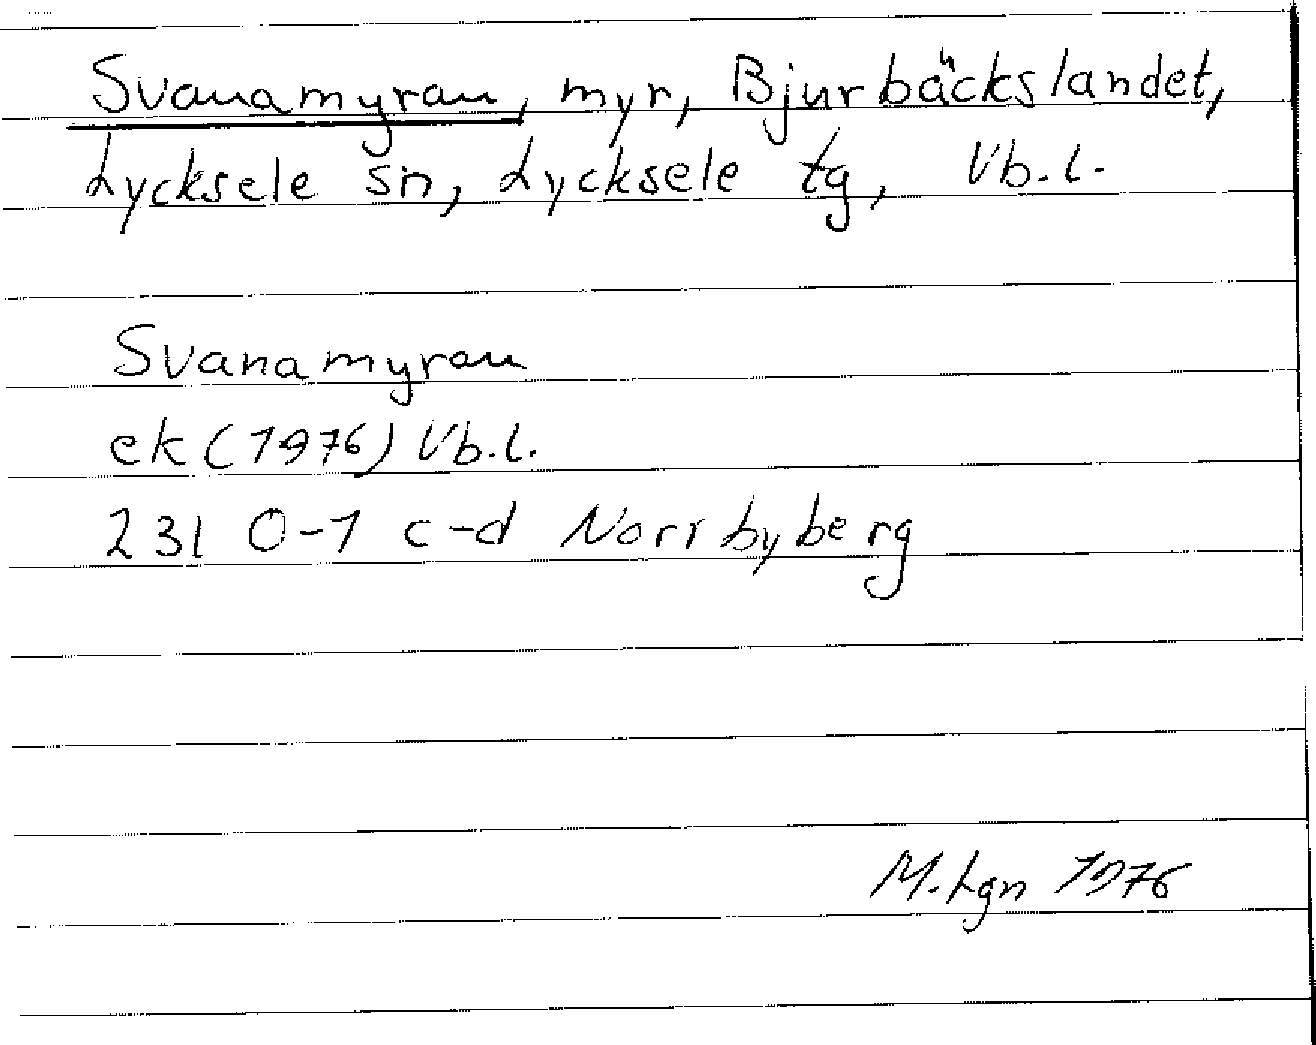 Svanamyran, myr, Bjurbäckslandet,
Lycksele sn, Lycksele tg, Vb.l.
Svanamyran
ek (1976) Vb.l.
23I 0-1 c-d Norrbyberg
M. Lgn 1976